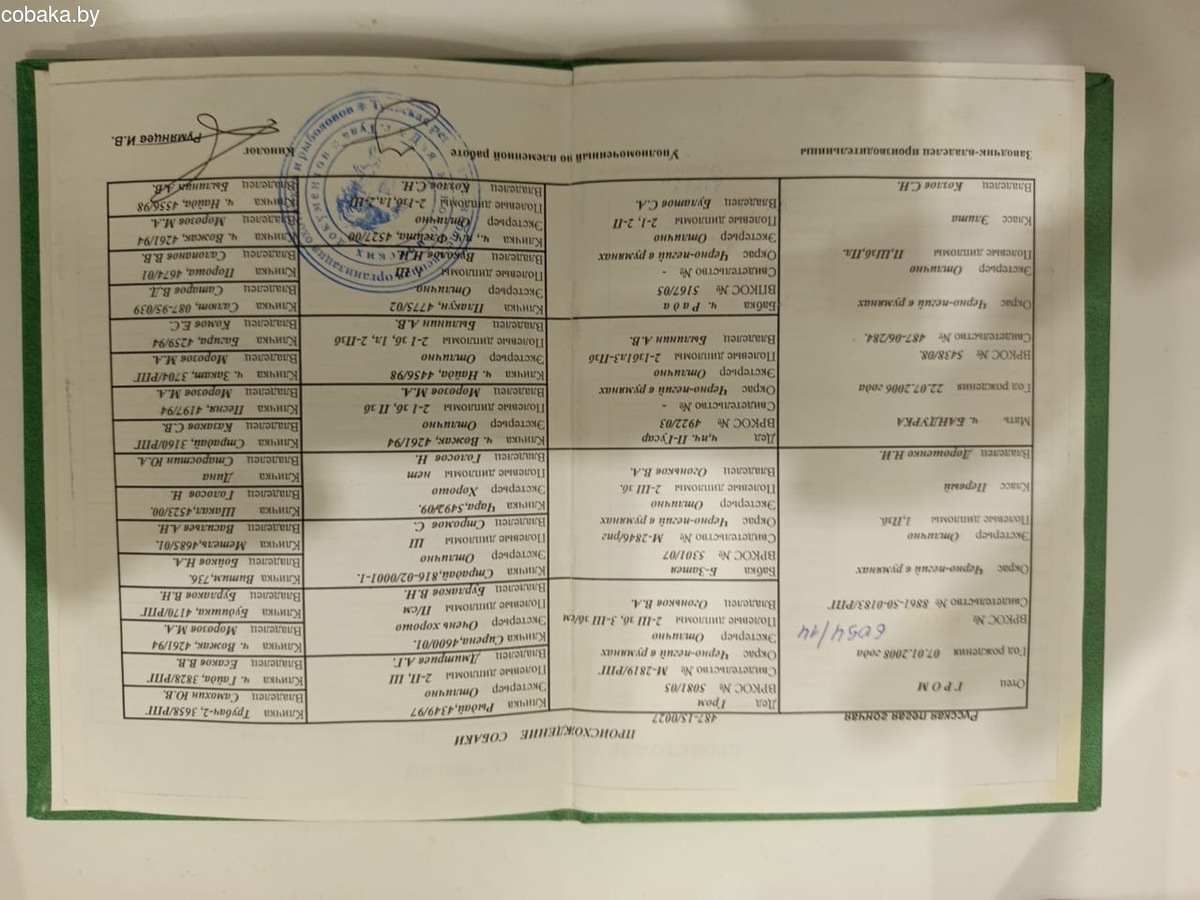 cobaka.by
ПРОИСХОЖДЕНИЕ СОБАКИ
Русская пегая гончая
487-15/0027
Отец ГРОМ
Год рождения 07.01.2008 года
ВРКОС № 6054/14
Свидетельство № 8861-50-0183/РПГ
Окрас Черно-пегий в румянах
Экстерьер Отлично
Полевые дипломы 1,IIзб.
Класс Первый
Владелец Дорошенко Н.И.
Мать ч. БАНДУРКА
Год рождения 22.07.2006 года
ВРКОС № 5438/08.
Свидетельство № 487-06/284.
Окрас Черно-пегий в румянах
Экстерьер Отлично
Полевые дипломы II,IIIзб,IIл.
Класс Элита
Владелец Козлов С.Н.
Дед Гром
ВРКОС № 5081/05
Свидетельство № М-2819/РПГ
Окрас Черно-пегий в румянах
Экстерьер Отлично
Полевые дипломы 2-III зб, 3-III зб/см
Владелец Огоньков В.А.
Бабка Б-Затея
ВРКОС № 5301/07
Свидетельство № М-2846/рпг
Окрас Черно-пегий в румянах
Экстерьер Отлично
Полевые дипломы 2-III зб.
Владелец Огоньков В.А.
Дед ч,пч. П-Гусар
ВРКОС № 4922/03
Свидетельство № -
Окрас Черно-пегий в румянах
Экстерьер Отлично
Полевые дипломы 2-1зб1л3-IIзб
Владелец Былинин А.В.
Бабка ч. Рада
ВПКОС № 5167/05
Свидетельство № -
Окрас Черно-пегий в румянах
Экстерьер Отлично
Полевые дипломы 2-1, 2-II
Владелец Булатов С.А.
Кличка Рыдай,4349/97
Экстерьер Отлично
Полевые дипломы 2-II, III
Владелец Дмитриев А.Г.
Кличка Сирена,4600/01.
Экстерьер Очень хорошо
Полевые дипломы II/см
Владелец Бурлаков В.Н.
Кличка Страдай,816-02/0001-1.
Экстерьер Отлично
Полевые дипломы III
Владелец Стромов С.
Кличка Чара,5492/09.
Экстерьер Хорошо
Полевые дипломы нет
Владелец Голосов Н.
Кличка ч. Вожак, 4261/94
Экстерьер Отлично
Полевые дипломы 2-1, зб, II зб
Владелец Морозов М.А.
Кличка ч. Найда, 4456/98
Экстерьер Отлично
Полевые дипломы 2-1, зб, 1л, 2-IIзб
Владелец Былинин А.В.
Кличка Плакун, 4775/02
Экстерьер Отлично
Полевые дипломы 1-III
Владелец Вуколов Н.И.
Кличка ч., пч.Б-Флейта, 4527/00
Экстерьер Отлично
Полевые дипломы 2-1зб,1л,2-III
Владелец Козлов С.Н.
Кличка Трубач-2, 3658/РПГ
Владелец Самохин Ю.В.
Кличка ч. Гайда, 3828/РПГ
Владелец Есаков В.В.
Кличка ч. Вожак, 4261/94
Владелец Морозов М.А.
Кличка Будишка, 4170/РПГ
Владелец Бурлаков В.Н.
Кличка Витим,736.
Владелец Бойков Н.А.
Кличка Метель,4685/01.
Владелец Васильев А.Н.
Кличка Шакал,4523/00.
Владелец Голосов Н.
Кличка Дина
Владелец Старостин Ю.А.
Кличка Страдай, 3160/РПГ
Владелец Казаков С.В.
Кличка Песня, 4197/94
Владелец Морозов М.А.
Кличка ч. Закат, 3704/РПГ
Владелец Морозов М.А.
Кличка Багира, 4259/94
Владелец Комов Е.С.
Кличка Салют, 087-95/039
Владелец Сатаров В.Д.
Кличка Пороша, 4674/01
Владелец Сапожников В.В.
Кличка ч. Вожак, 4261/94
Владелец Морозов М.А.
Кличка ч. Найда, 4556/98
Владелец Былинин А.В.
Заводчик-владелец производительницы
Уполномоченный по племенной работе
Кинолог
Румянцев И.В.